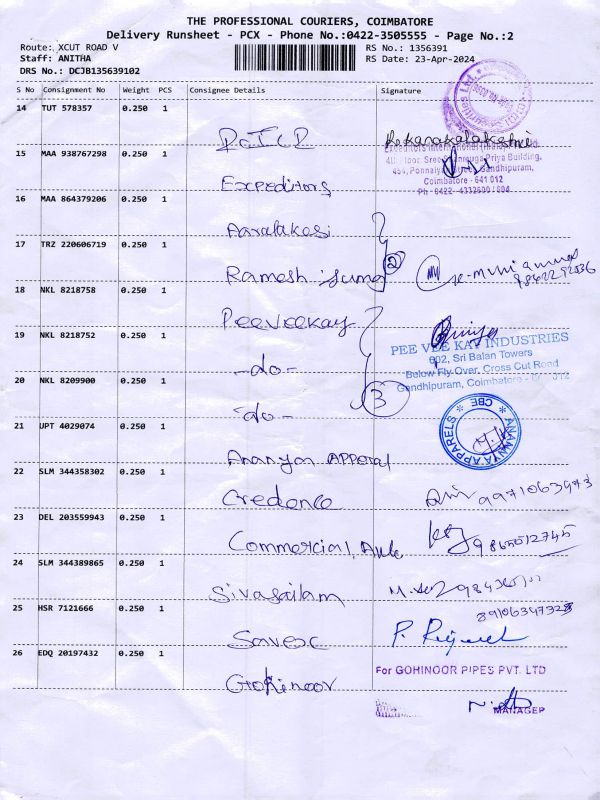 THE PROFESSIONAL COURIERS, COIMBATORE
Delivery Runsheet - PCX - Phone No.:0422-3505555 - Page No.:2
Route: XCUT ROAD V
Staff: ANITHA
DRS No.: DCJB135639102
RS No.: 1356391
RS Date: 23-Apr-2024
S No Consignment No Weight PCS Consignee Details Signature
14 TUT 578357 0.250 1
15 MAA 938767298 0.250 1
Building,
Gandhipuram,
Coimbatore - 641 012
Expeditors
16 MAA 864379206 0.250 1
17 TRZ 220606719 0.250 1
Ramesh 2
18 NKL 8218758 0.250 1
Peeveekay
19 NKL 8218752 0.250 1
PEE VEE KAY INDUSTRIES
602, Sri Balan Towers
Below Fly Over, Cross Cut Road
Gandhipuram, Coimbatore
-do-
20 NKL 8209900 0.250 1
3
-do-
ANANYA APPARELS CBE
21 UPT 4029074 0.250 1
Ananya Apparal
22 SLM 344358302 0.250 1
Credence 9971063973
23 DEL 203559943 0.250 1
Commercial
24 SLM 344389865 0.250 1
Sivasailam
25 HSR 7121666 0.250 1
Savex
26 EDQ 20197432 0.250 1
For GOHINOOR PIPES PVT. LTD
Gohinoor
MANAGER